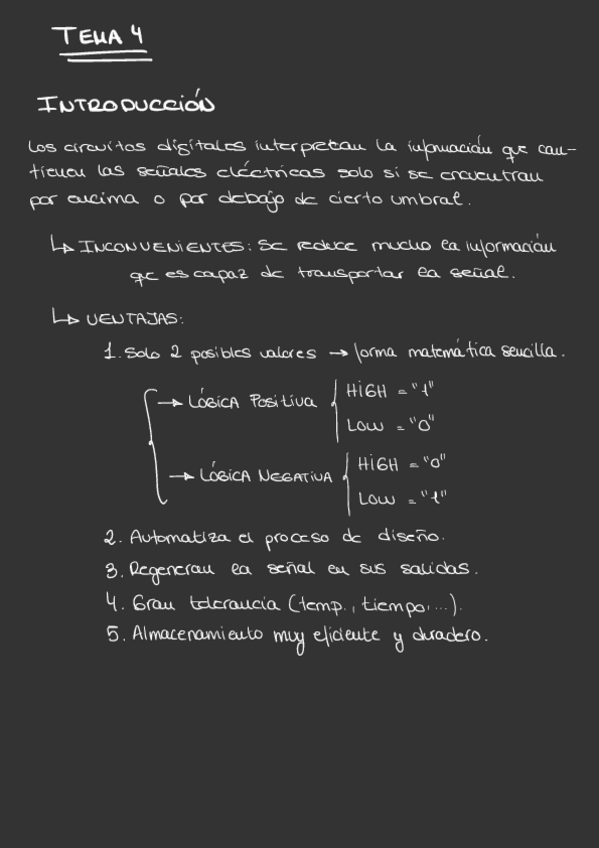 TEMA 4
INTRODUCCIÓN
Los circuitos digitales interpretan la información que con-
tienen las señales eléctricas solo si se encuentran
por encima o por debajo de cierto umbral.
↳ INCONVENIENTES: Se reduce mucho la información
que es capaz de transportar la señal.
↳ VENTAJAS:
1. Solo 2 posibles valores → forma matemática sencilla.
→ LÓGICA POSITIVA { HIGH = "1"
LOW = "0"
→ LÓGICA NEGATIVA { HIGH = "0"
LOW = "1"
2. Automatiza el proceso de diseño.
3. Regeneran la señal en sus salidas.
4. Gran tolerancia (temp., tiempo,...).
5. Almacenamiento muy eficiente y duradero.